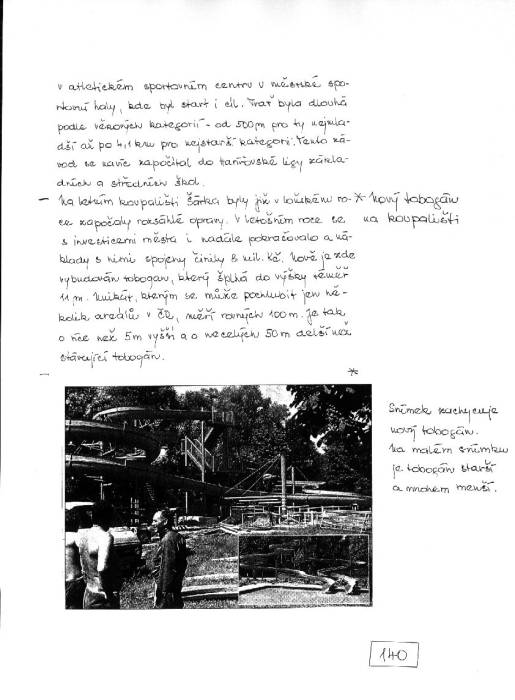 v atletickém sportovním centru u městské spo-
rtovní haly, kde byl start i cíl. Trať byla dlouhá
podle věkových kategorií - od 500m pro ty nejmla-
dší až po 4,1 km pro nejstarší kategorii. Tento zá-
vod se navíc započítal do tanvaldské ligy základ-
ních a středních škol.
- Na letním koupališti Šárka byly již v loňském ro-
ce započaty rozsáhlé opravy. V letošním roce se
s investicemi města i nadále pokračovalo a ná-
klady s nimi spojeny činily 8 mil. Kč. Nově je zde
vybudován tobogan, který šplhá do výšky téměř
11 m. Unikát, kterým se může pochlubit jen ně-
kolik areálů v ČR, měří rovných 100 m. Je tak
o více než 5m vyšší a o necelých 50m delší než
stávající tobogán.
* Nový tobogán
na koupališti
- *
Snímek zachycuje
nový tobogán.
Na malém snímku
je tobogán starší
a mnohem menší.
140